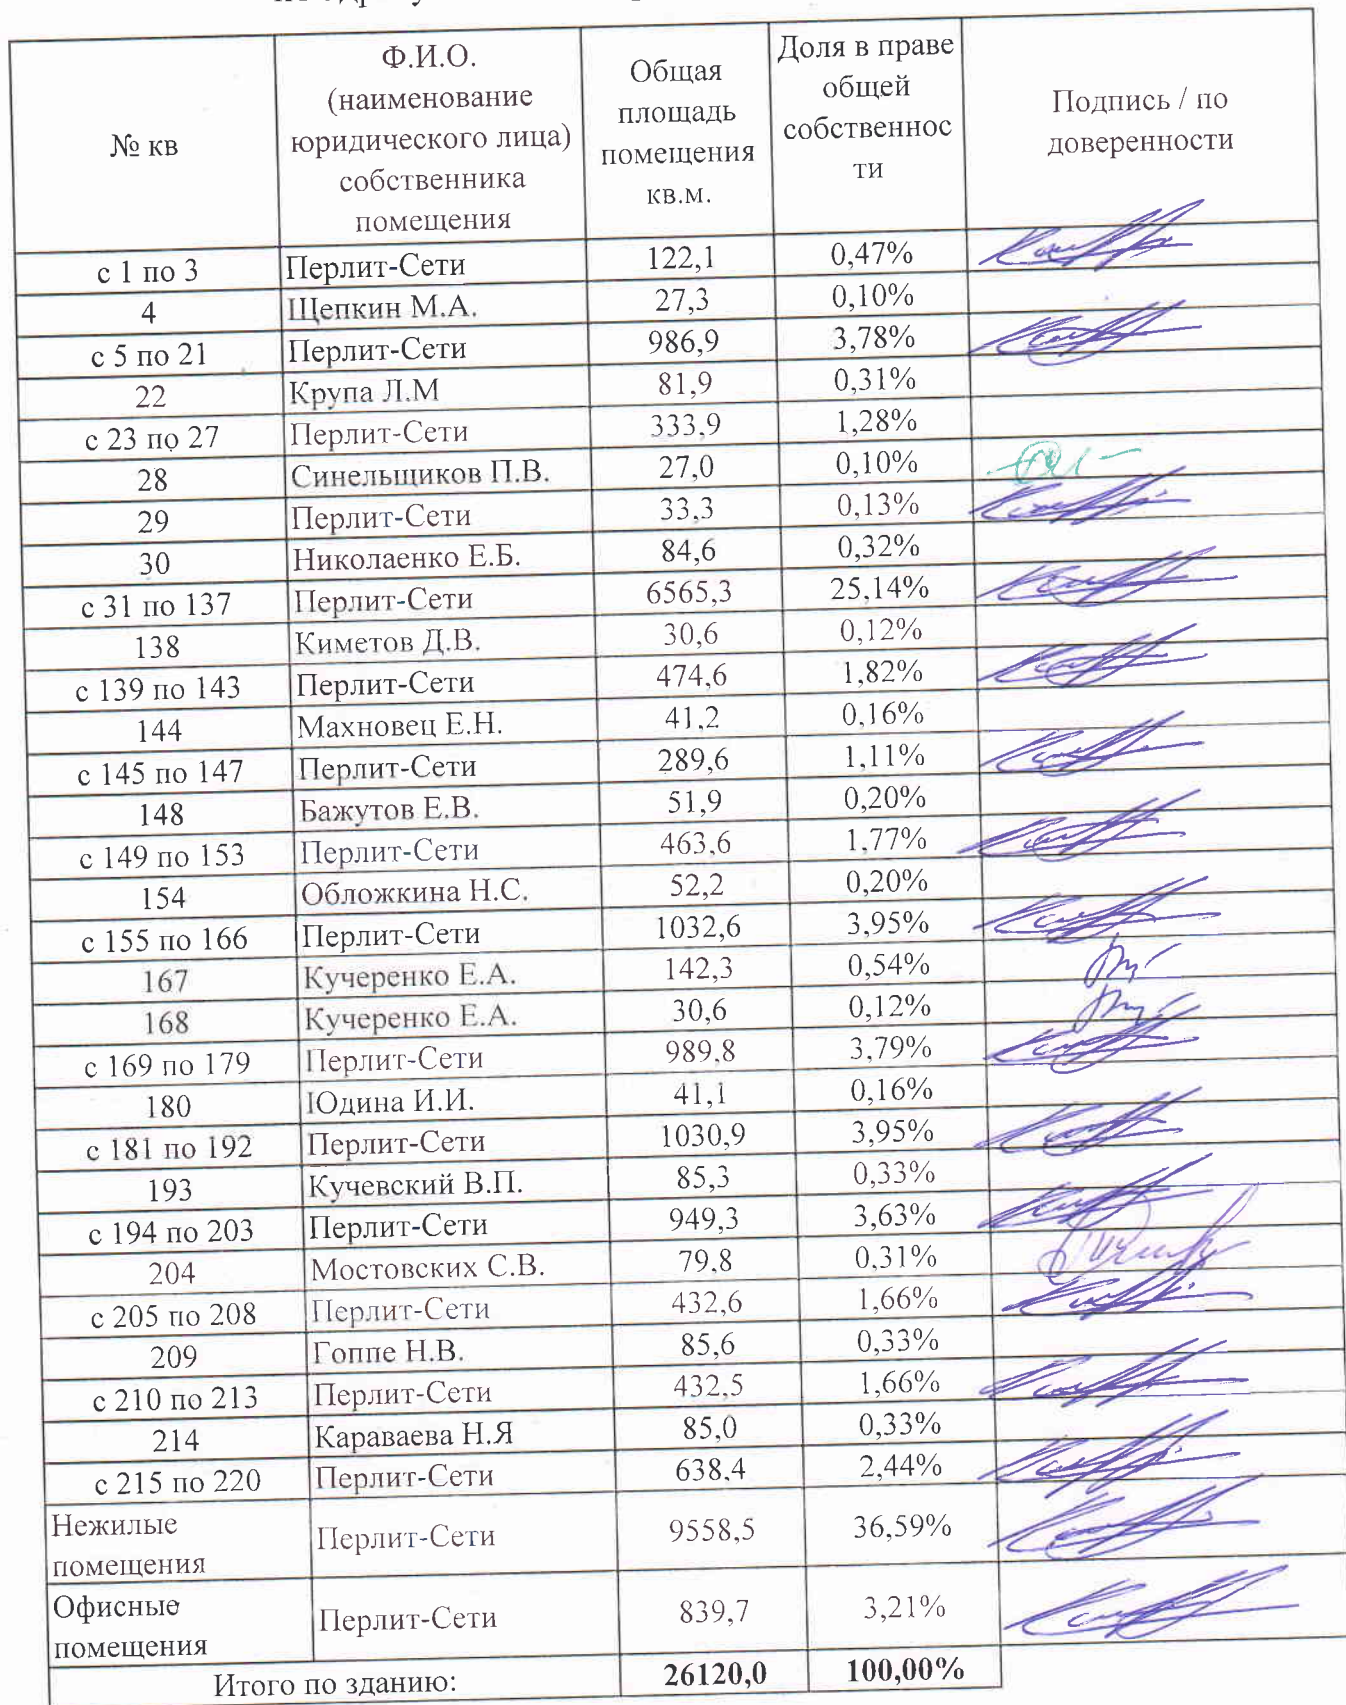 № кв
Ф.И.О.
(наименование
юридического лица)
собственника
помещения
Общая
площадь
помещения
кв.м.
Доля в праве
общей
собственнос
ти
Подпись / по
доверенности
с 1 по 3 Перлит-Сети 122,1 0,47%
4 Щепкин М.А. 27,3 0,10%
с 5 по 21 Перлит-Сети 986,9 3,78%
22 Крупа Л.М 81,9 0,31%
с 23 по 27 Перлит-Сети 333,9 1,28%
28 Синельщиков П.В. 27,0 0,10%
29 Перлит-Сети 33,3 0,13%
30 Николаенко Е.Б. 84,6 0,32%
с 31 по 137 Перлит-Сети 6565,3 25,14%
138 Киметов Д.В. 30,6 0,12%
с 139 по 143 Перлит-Сети 474,6 1,82%
144 Махновец Е.Н. 41,2 0,16%
с 145 по 147 Перлит-Сети 289,6 1,11%
148 Бажутов Е.В. 51,9 0,20%
с 149 по 153 Перлит-Сети 463,6 1,77%
154 Обложкина Н.С. 52,2 0,20%
с 155 по 166 Перлит-Сети 1032,6 3,95%
167 Кучеренко Е.А. 142,3 0,54%
168 Кучеренко Е.А. 30,6 0,12%
с 169 по 179 Перлит-Сети 989,8 3,79%
180 Юдина И.И. 41,1 0,16%
с 181 по 192 Перлит-Сети 1030,9 3,95%
193 Кучевский В.П. 85,3 0,33%
с 194 по 203 Перлит-Сети 949,3 3,63%
204 Мостовских С.В. 79,8 0,31%
с 205 по 208 Перлит-Сети 432,6 1,66%
209 Гоппе Н.В. 85,6 0,33%
с 210 по 213 Перлит-Сети 432,5 1,66%
214 Караваева Н.Я 85,0 0,33%
с 215 по 220 Перлит-Сети 638,4 2,44%
Нежилые
помещения
Перлит-Сети 9558,5 36,59%
Офисные
помещения
Перлит-Сети 839,7 3,21%
Итого по зданию: 26120,0 100,00%